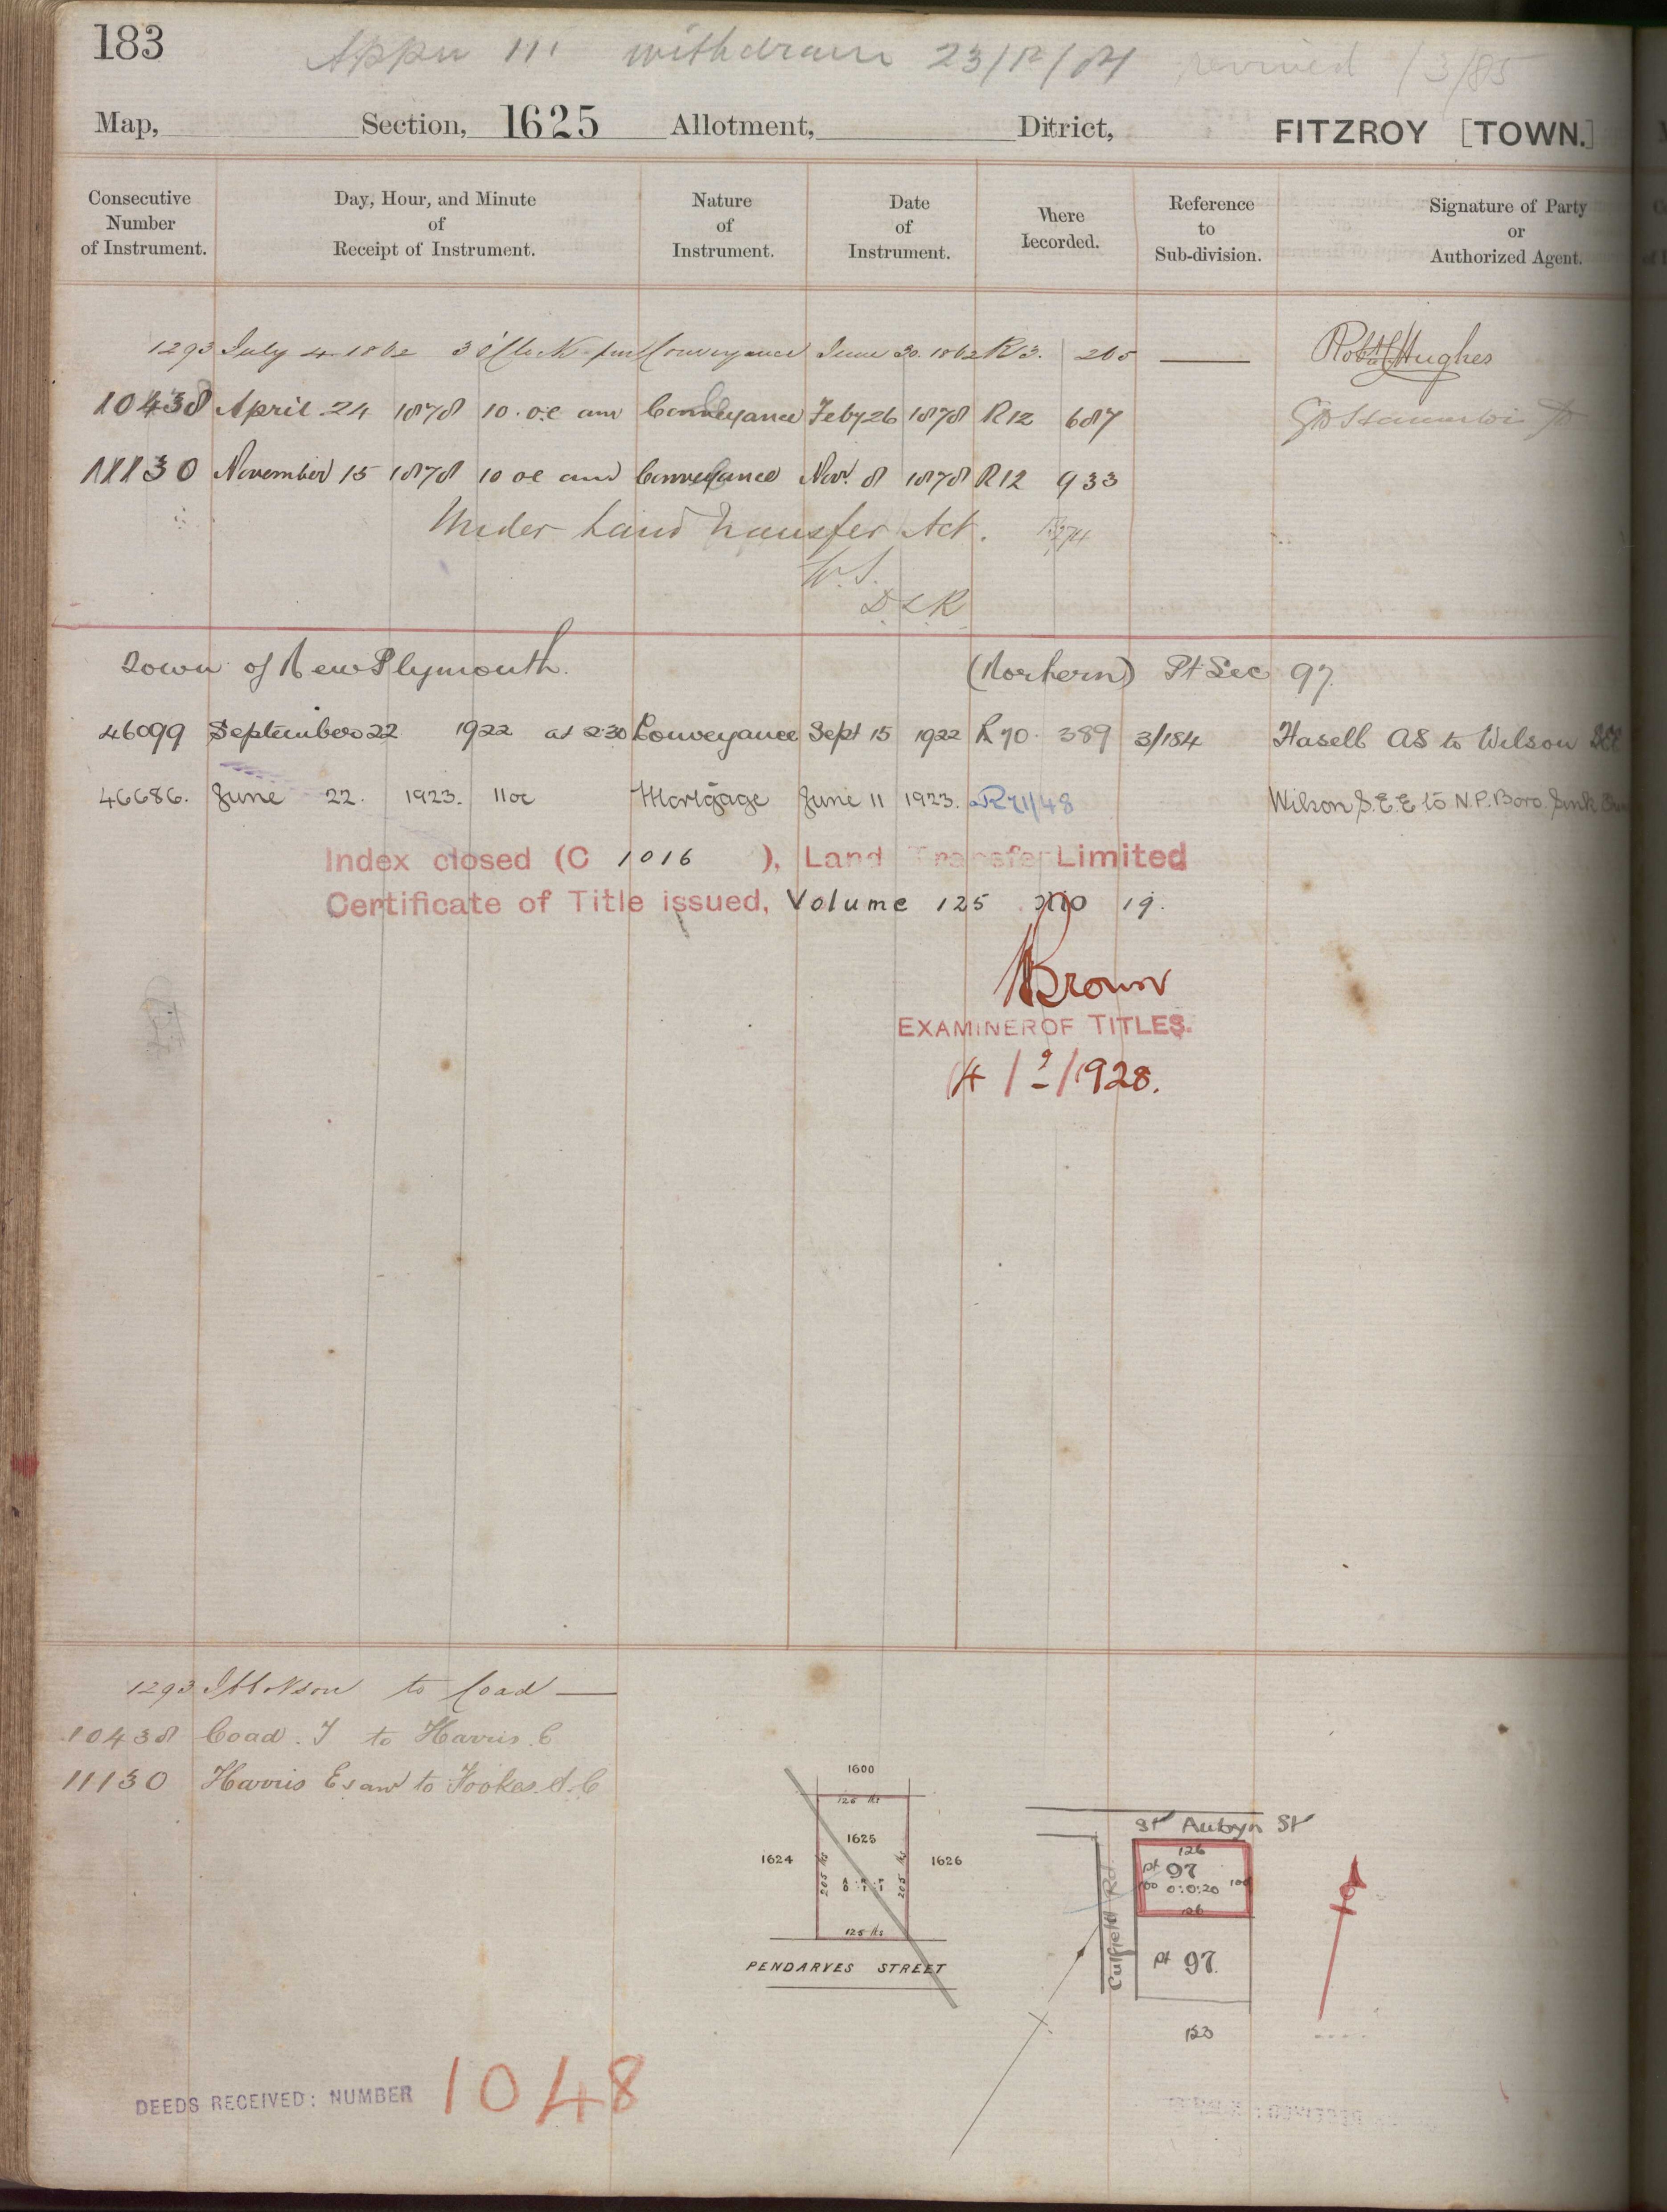 183
Appn 111 withdrawn 23/12/84 revived /3/85
Map, Section, 1625 Allotment, Ditrict, FITZROY [TOWN.]
Consecutive Number of Instrument. Day, Hour, and Minute of Receipt of Instrument. Nature of Instrument. Date of Instrument. Vhere Iecorded. Reference to Sub-division. Signature of Party or Authorized Agent.
1293 July 4 1862 3 o'Clock pm Conveyance June 30. 1862 R3. 265 Robt Hughes
10438 April 24 1878 10. oc am Conveyance Feby 26 1878 R12 687
11130 November 15 1878 10 oc am Conveyance Nov. 8 1878 R12 933
Under Land Transfer Act.
W.S.
D.L.R.
Town of New Plymouth. (Northern) Pt Sec 97.
46099 September 22 1922 at 2.30 Conveyance Sept 15 1922 R70 389 3/184 Hasell AS to Wilson SEE
46686. June 22. 1923. 11 oc Mortgage June 11 1923. R71/48 Wilson S.E.E to N.P. Boro. Sink
Index closed (C 1016 ), Land Transfer Limited
Certificate of Title issued, Volume 125 folio 19.
Brown
EXAMINER OF TITLES.
4/9/1928.
1293 to Coad
10438 Coad. J to Harris. E
11130 Harris E to Fookes A. C
1600
125 lks
1625
1624
1626
205 lks
205 lks
A. R. P
0 : 1 : 1
125 lks
PENDARVES STREET
St Aubyn St
126
pt 97
100 0:0:20 100
126
Cutfield Rd.
pt 97.
123
DEEDS RECEIVED: NUMBER 1048